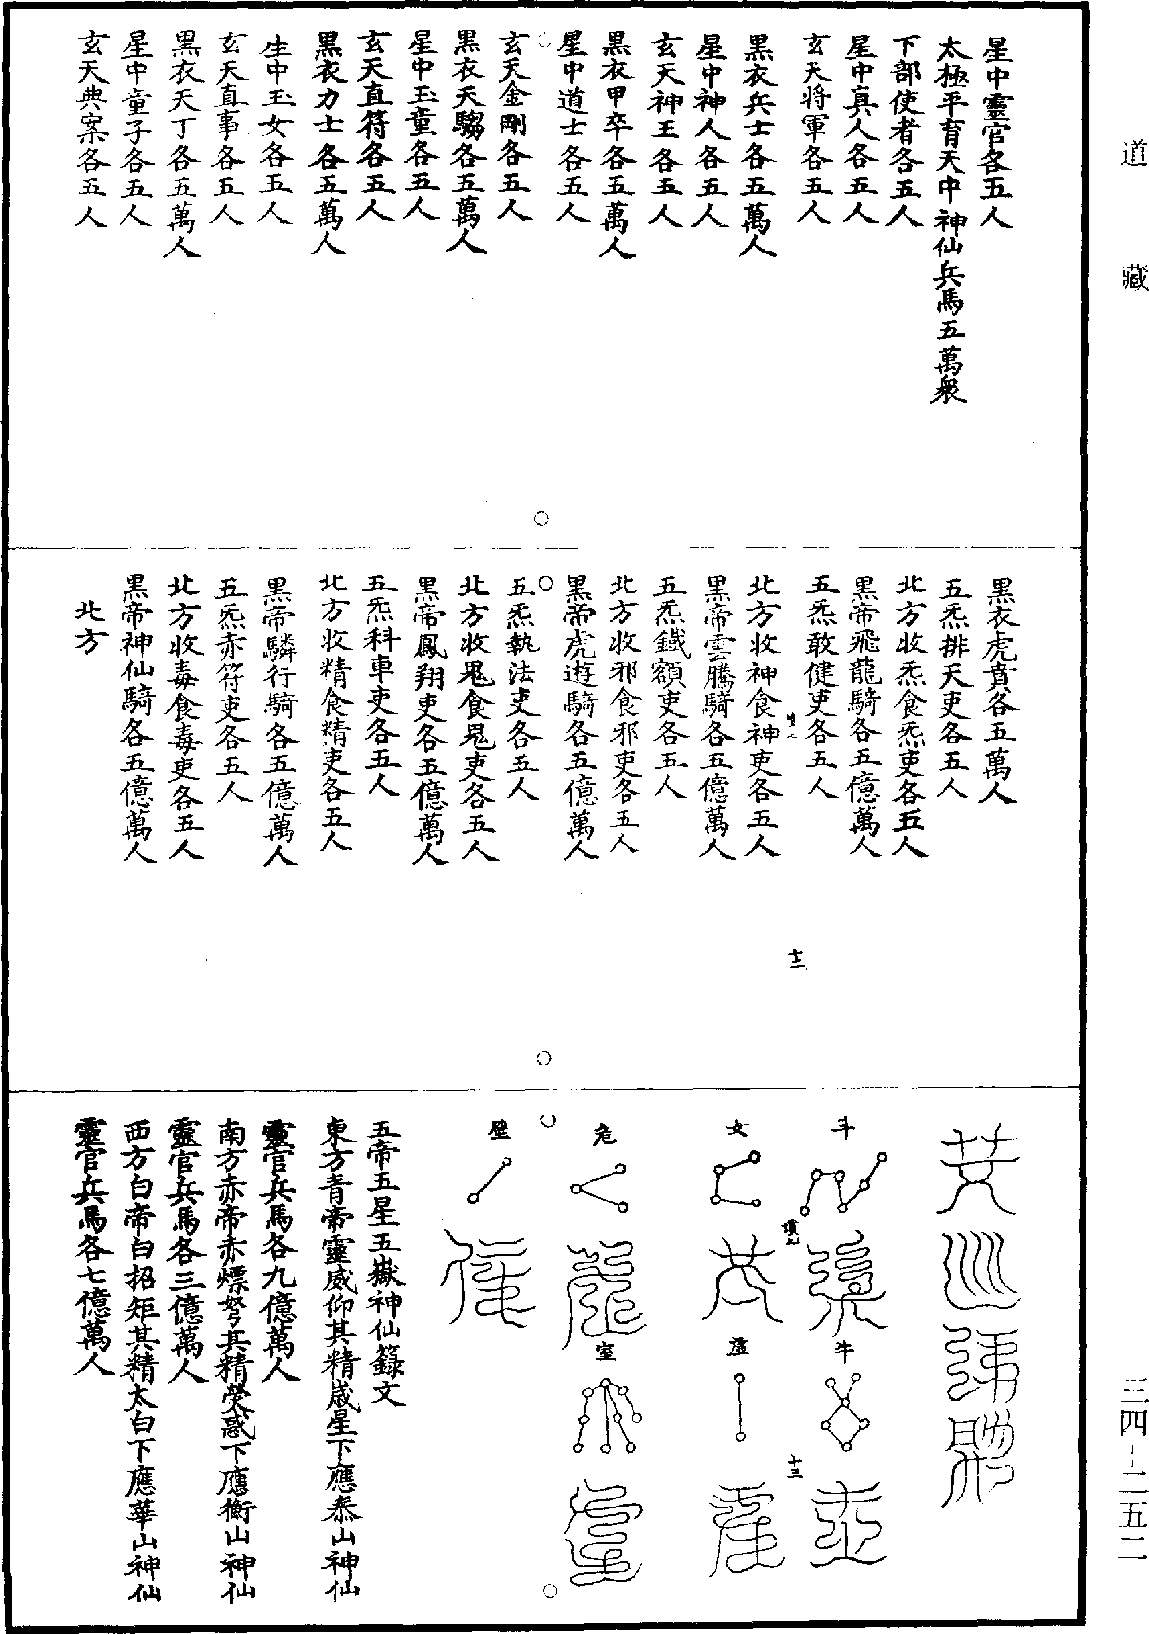 道藏
星中靈官各五人
太極平育天中神仙兵馬五萬衆
下部使者各五人
星中真人各五人
玄天将軍各五人
黑衣兵士各五萬人
星中神人各五人
玄天神王各五人
黑衣甲卒各五萬人
星中道士各五人
玄天金剛各五人
黑衣天騶各五萬人
星中玉童各五人
玄天直符各五人
黑衣力士各五萬人
生中玉女各五人
玄天直事各五人
黑衣天丁各五萬人
星中童子各五人
玄天典案各五人
黑衣虎賁各五萬人
五炁排天吏各五人
北方收炁食炁吏各五人
黑帝飛龍騎各五億萬人
五炁敢健吏各五人
北方收神食神吏各五人
黑帝雲騰騎各五億萬人
五炁鐵額吏各五人
北方收邪食邪吏各五人
黑帝虎遊騎各五億萬人
五炁執法吏各五人
北方收鬼食鬼吏各五人
黑帝鳳翔吏各五億萬人
五炁科車吏各五人
北方收精食精吏各五人
黑帝驎行騎各五億萬人
五炁赤符吏各五人
北方收毒食毒吏各五人
黑帝神仙騎各五億萬人
北方
十二
斗
牛
十三
女
虛
危
室
壁
五帝五星五嶽神仙籙文
東方青帝靈威仰其精嵗星下應泰山神仙
靈官兵馬各九億萬人
南方赤帝赤熛弩其精熒惑下應衡山神仙
靈官兵馬各三億萬人
西方白帝白招矩其精太白下應華山神仙
靈官兵馬各七億萬人
三四-二五二